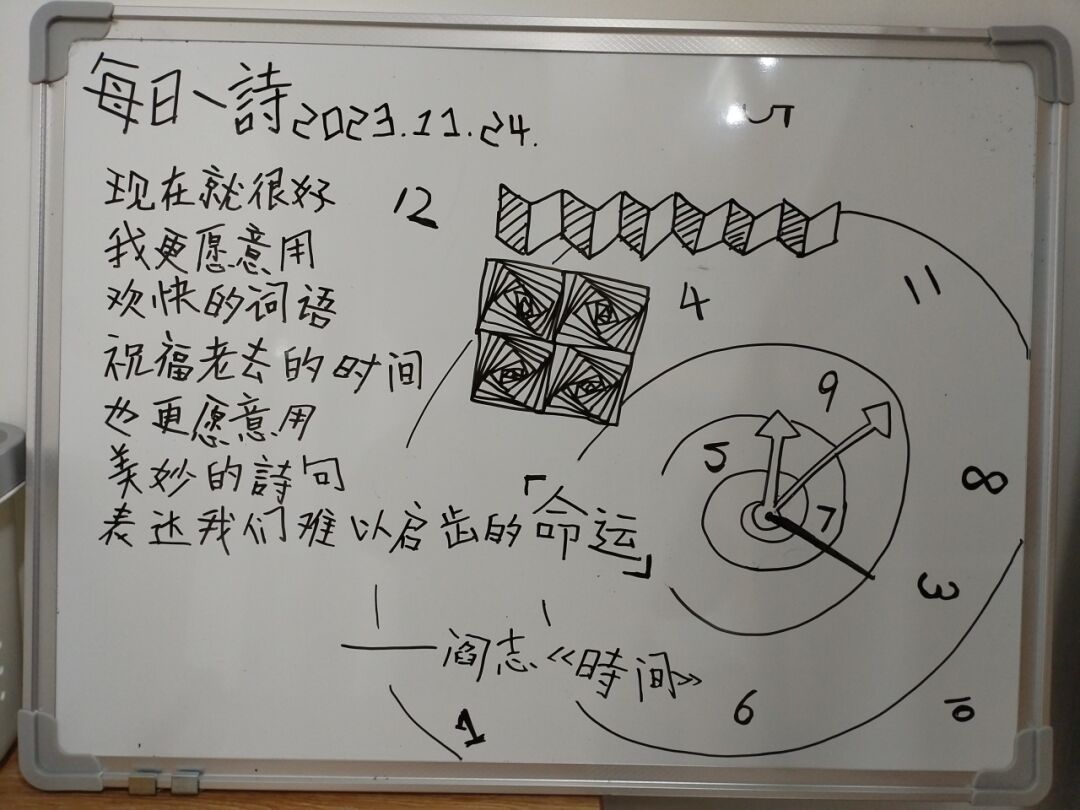 每日一詩2023.11.24.
现在就很好
我更愿意用
欢快的词语
祝福老去的时间
也更愿意用
美妙的詩句
表达我们难以启齿的「命运」
——阎志《時间》
12
5
11
4
9
5
7
8
3
6
10
1